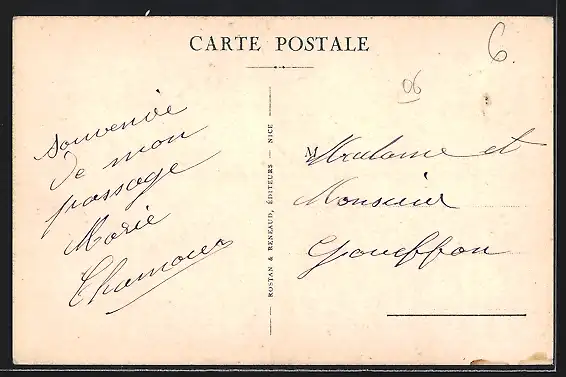 CARTE POSTALE
6.
06
souvenir
de mon
passage
Marie
Chamoux
ROSTAN & RENEAUD, ÉDITEURS — NICE
M
Madame et
Monsieur
Gouffon